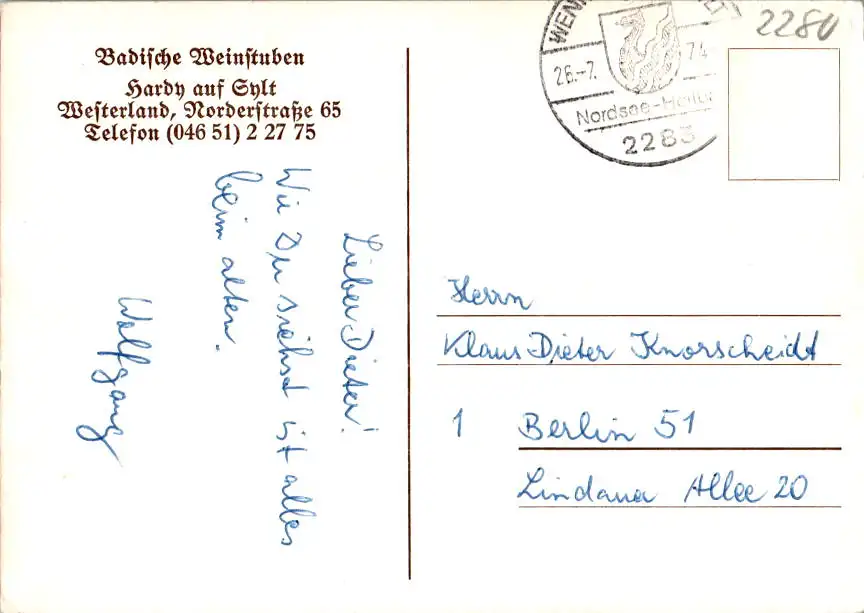 Badische Weinstuben
Hardy auf Sylt
Westerland, Norderstraße 65
Telefon (046 51) 2 27 75
Lieber Dieter!
Wie Du siehst ist alles
beim alten.
Wolfgang
26.-7. 74
Nordsee-Heilb
2283
2280
Herrn
Klaus-Dieter Knorscheidt
1 Berlin 51
Lindauer Allee 20